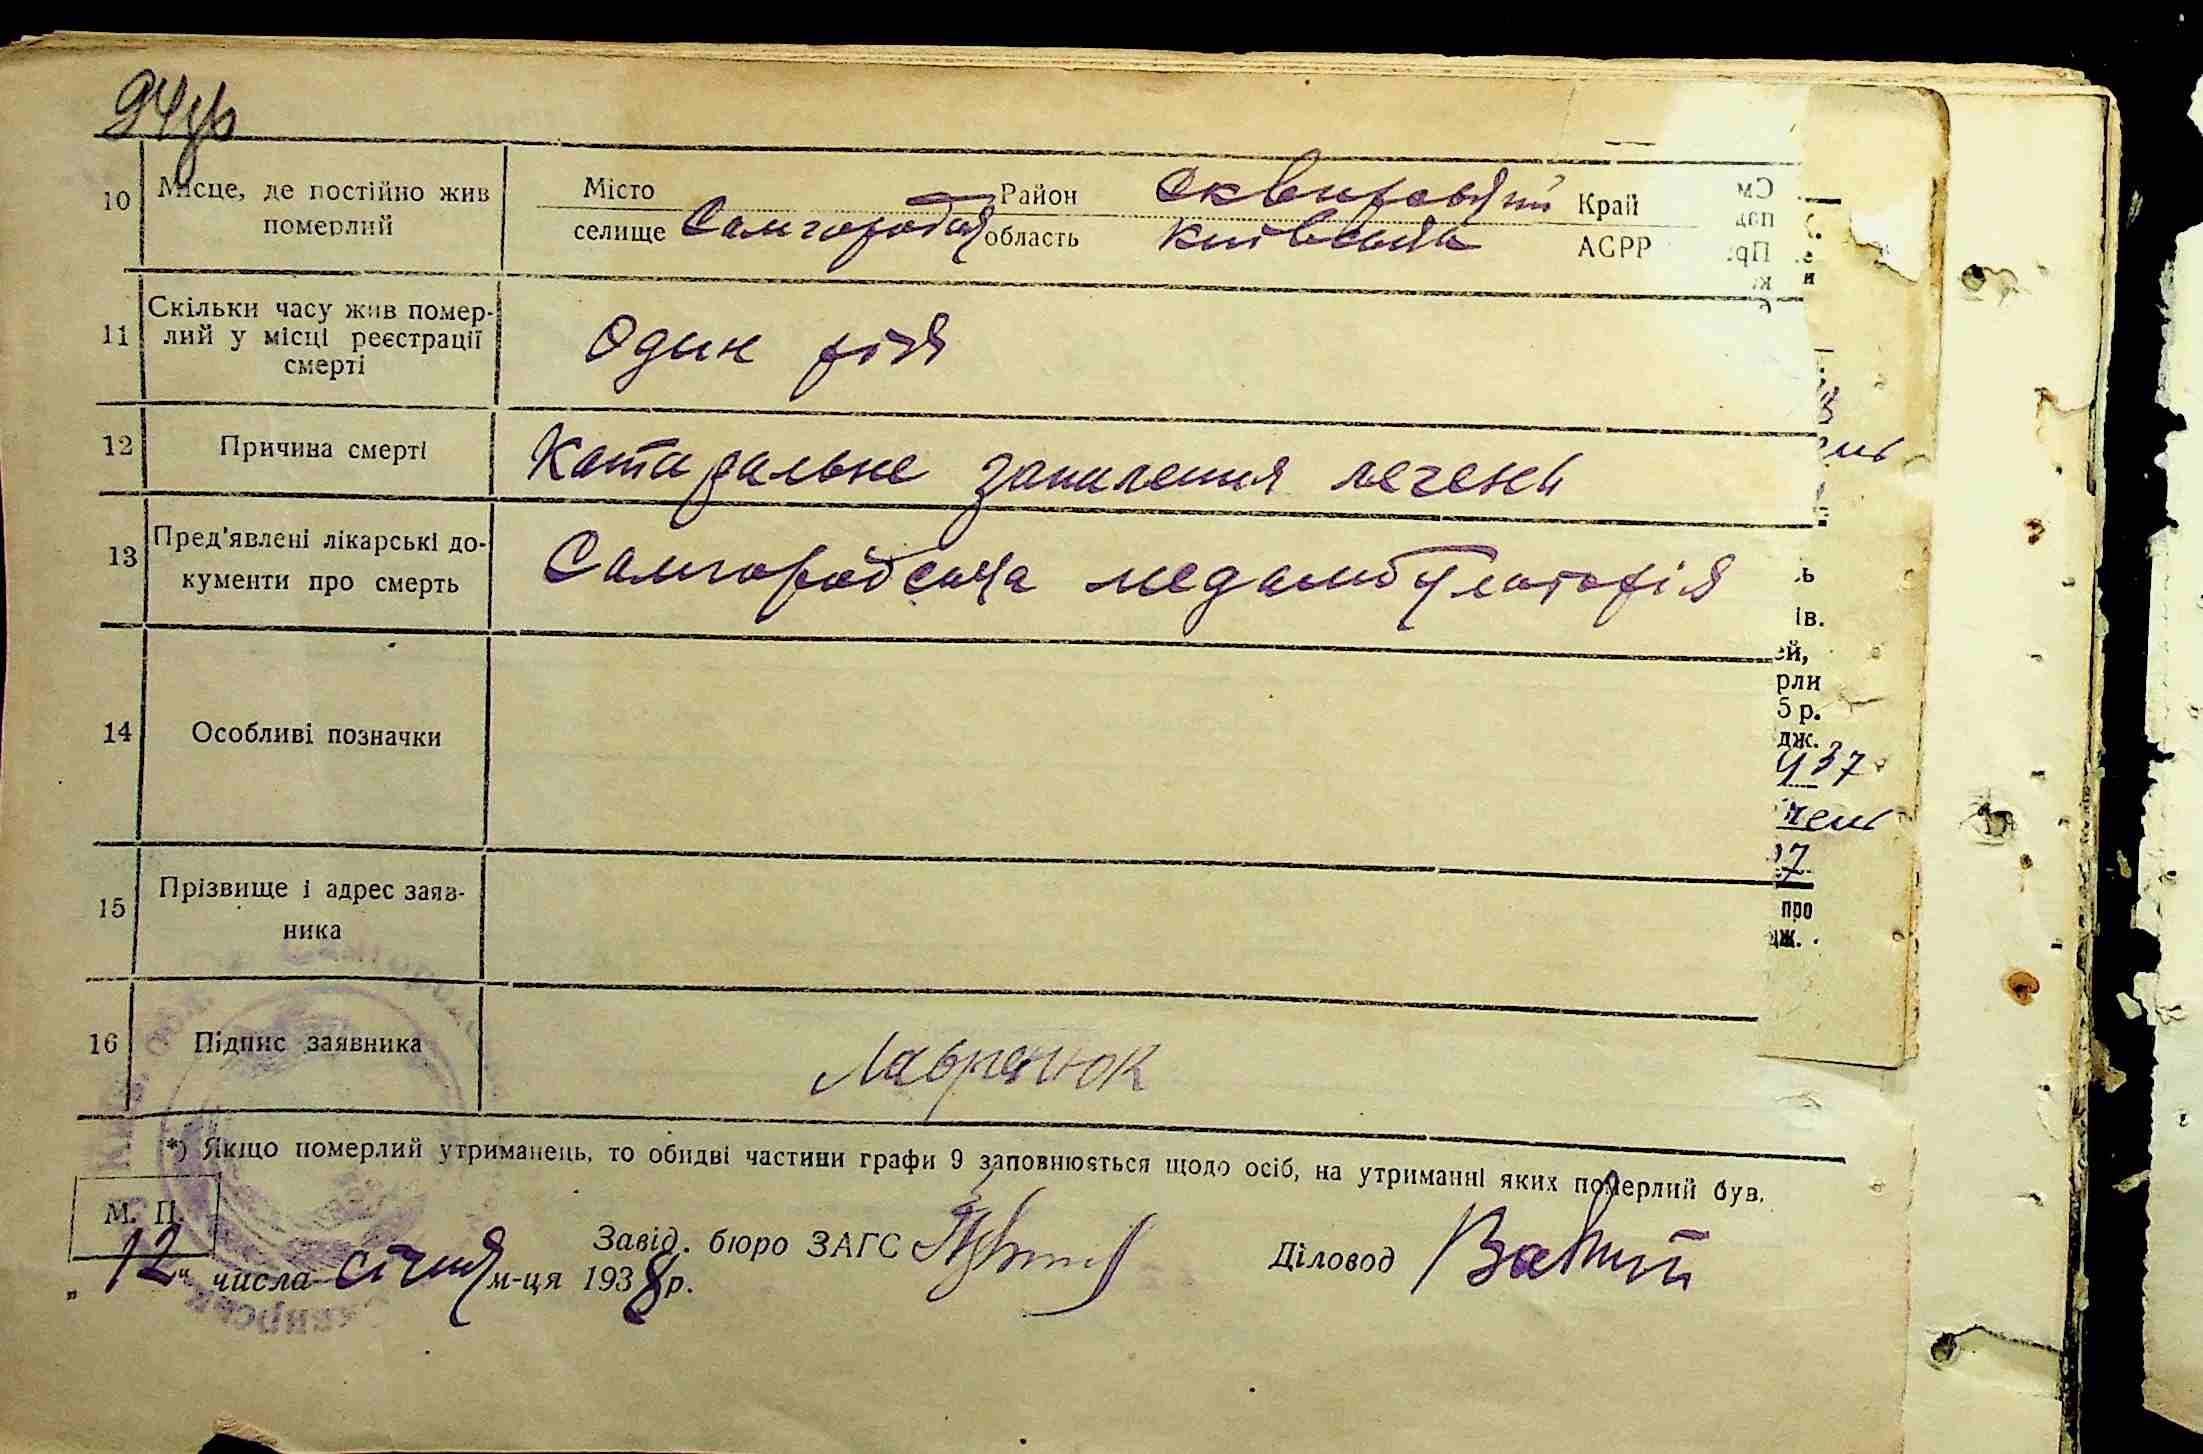 94зв
10 Місце, де постійно жив Місто Район Сквирський Край
померлий селище Самгородок область Київська АСРР
11 Скільки часу жив помер-
лий у місці реєстрації
смерті
Один рік
12 Причина смерті Катаральне запалення печени
13 Пред'явлені лікарські до-
кументи про смерть
Самгородська медамбулаторія
14 Особливі позначки
15 Прізвище і адрес заяв-
ника
16 Підпис заявника Лавренюк
*) Якщо померлий утриманець, то обидві частини графи 9 заповнюється щодо осіб, на утриманні яких померлий був.
М. П.
Завід. бюро ЗАГС Діловод
„12" числа січня м-ця 1938 р.
ів.
ей,
рли
5 р.
дж.
37
про
дж.